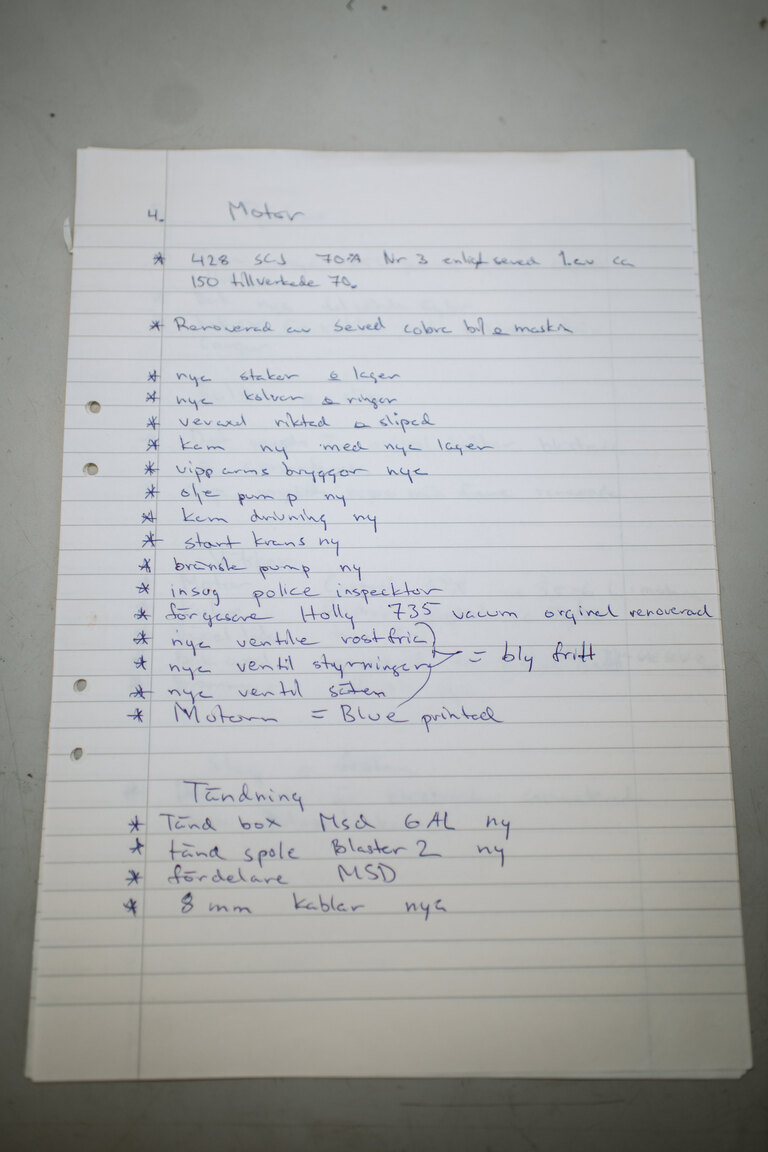 4. Motor
* 428 SCJ 70:a Nr 3 enligt seved 1. av ca
150 tillverkade 70.
* Renoverad av seved cobra bil & maskin
* nya staker & lager
* nya kolvar & ringar
* vevaxel riktad & slipad
* kam ny med nya lager
* vipparms bryggor nya
* olje pump ny
* kam drivning ny
* start krans ny
* bränsle pump ny
* insug police inspecktor
* förgasare Holly 735 vacum orginal renoverad
* nya ventile rostfria
* nya ventil styrningar = bly fritt
* nya ventil säten
* Motorn = Blue printad
Tändning
* Tänd box Msd 6 AL ny
* tänd spole Blaster 2 ny
* fördelare MSD
* 8 mm kablar nya